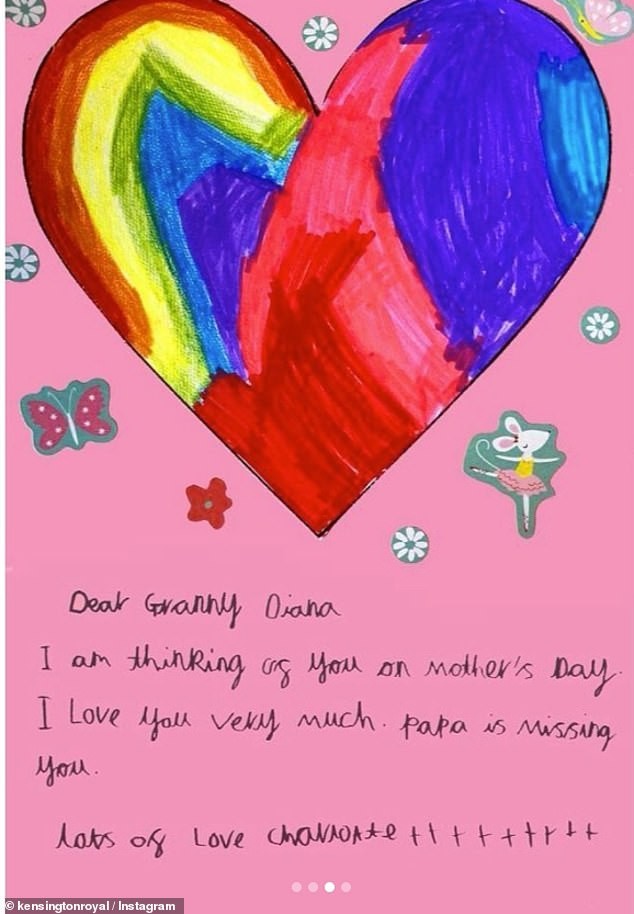 Dear Granny Diana
I am thinking of you on Mother's Day.
I Love you very much. papa is missing
you.
lots of Love Charlotte + + + + + + + + +
© kensingtonroyal / Instagram